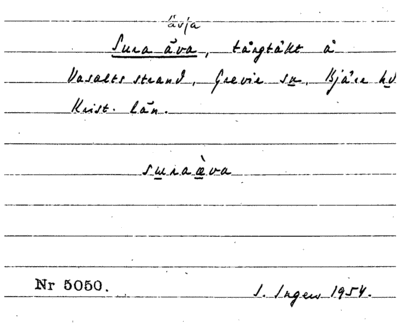 ävja
Sura äva, tångtäkt å
Vasalts strand, Grevie sn, Bjäre hd
Krist. län.
suraèva
Nr 5050.
I. Ingers 1954.